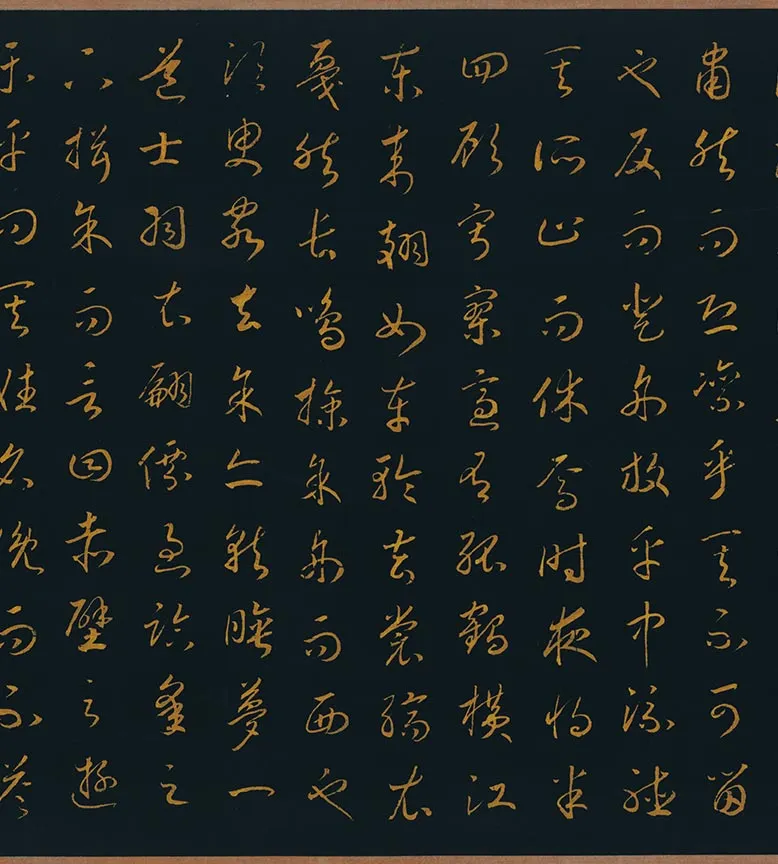 肅然而恐凜乎其不可留
也反而登舟放乎中流聽
其所止而休焉時夜將半
四顧寂寥適有孤鶴橫江
東來翅如車輪玄裳縞衣
戛然長鳴掠余舟而西也
須臾客去余亦就睡夢一
道士羽衣翩僊過臨皋之
下揖余而言曰赤壁之遊
樂乎問其姓名俛而不答